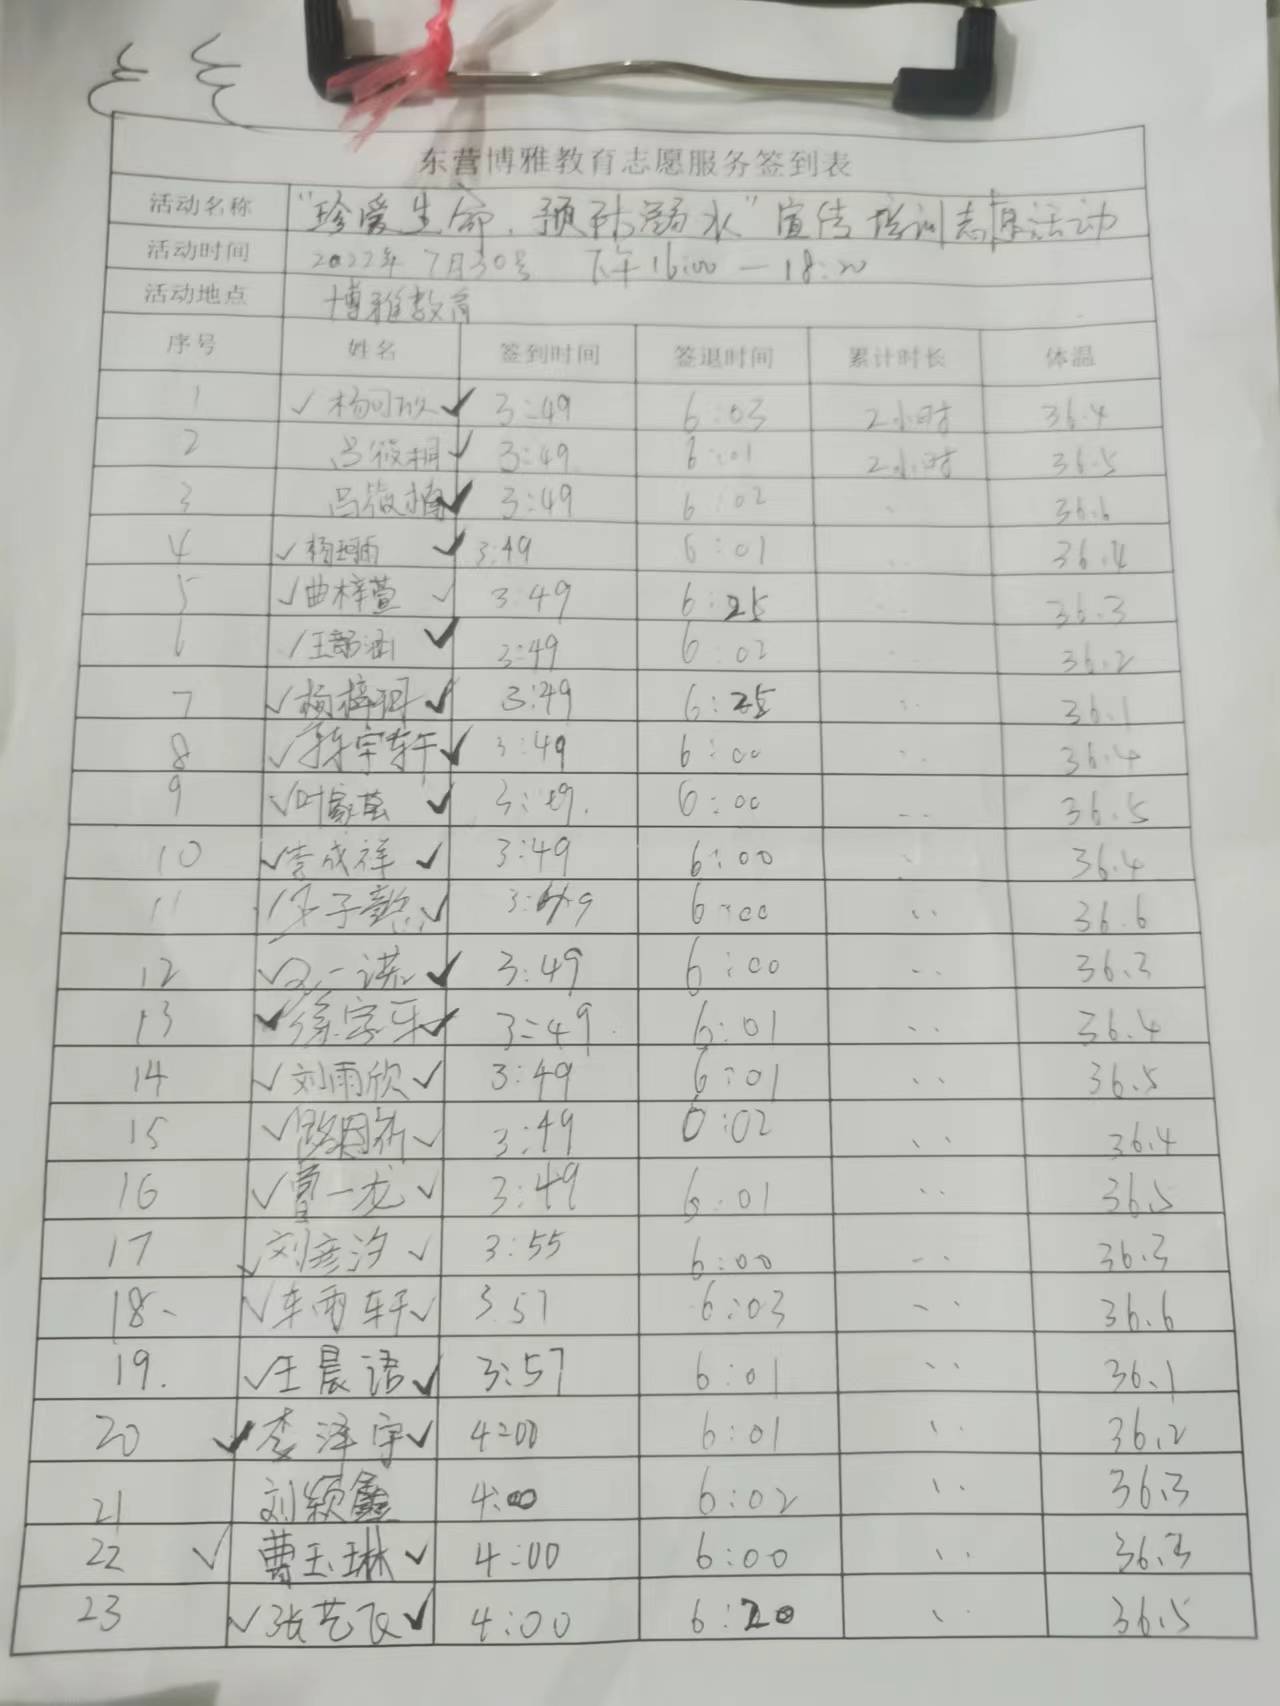 东营博雅教育志愿服务签到表
活动名称 "珍爱生命、预防溺水"宣传培训志愿活动
活动时间 2022年7月30号 下午16:00—18:20
活动地点 博雅教育
序号 姓名 签到时间 签退时间 累计时长 体温
1 ✓ ✓ 3:49 6:03 2小时 36.4
2 吕筱桐 ✓ 3:49 6:01 2小时 36.5
3 吕筱楠 ✓ 3:49 6:02 36.6
4 ✓ 杨珂雨 ✓ 3:49 6:01 36.4
5 ✓ 曲梓萱 ✓ 3:49 6:25 36.3
6 ✓ 涵 ✓ 3:49 6:02 36.2
7 ✓ 杨梓玥 ✓ 3:49 6:25 36.1
8 ✓ 宇轩 ✓ 3:49 6:00 36.4
9 ✓ 叶 ✓ 3:49 6:00 36.5
10 ✓ 李成祥 ✓ 3:49 6:00 36.4
11 子 ✓ 3:49 6:00 36.6
12 ✓ 一诺 ✓ 3:49 6:00 36.3
13 ✓ 徐 ✓ 3:49 6:01 36.4
14 ✓ 刘雨欣 ✓ 3:49 6:01 36.5
15 ✓ ✓ 3:49 6:02 36.4
16 ✓ 曹一龙 ✓ 3:49 6:01 36.5
17 ✓ 刘彦汐 ✓ 3:55 6:00 36.3
18 ✓ 车雨轩 ✓ 3:57 6:03 36.6
19. ✓ 王晨语 ✓ 3:57 6:01 36.1
20 ✓ 李泽宇 ✓ 4:00 6:01 36.2
21 刘颖鑫 4:00 6:02 36.3
22 ✓ 曹玉琳 ✓ 4:00 6:00 36.3
23 ✓ 张艺飞 ✓ 4:00 6:20 36.5